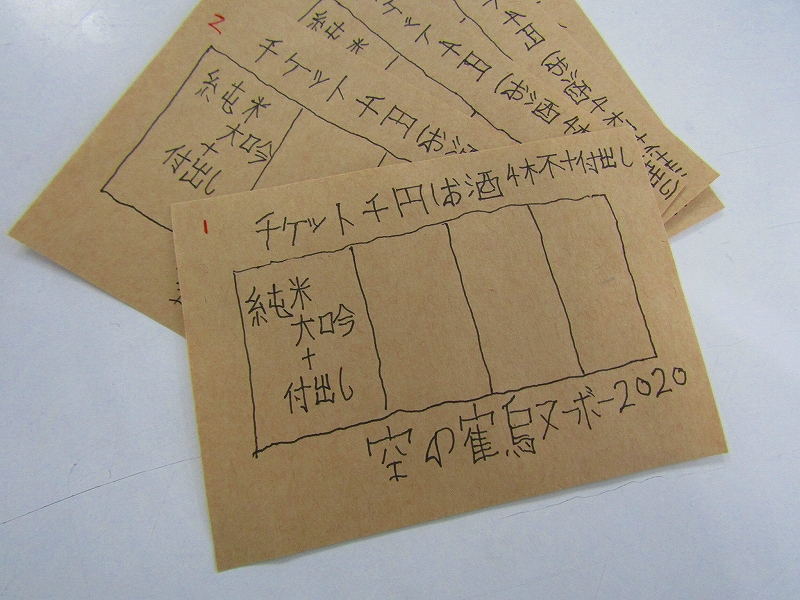 千円(お酒4杯+付出し)
ケット千円(お酒4
純米
2
チケット千円(お酒
純米
大吟
+
付出し
1
チケット千円(お酒4杯+付出し
純米
大吟
+
付出し
空の鶴ヌーボー2020